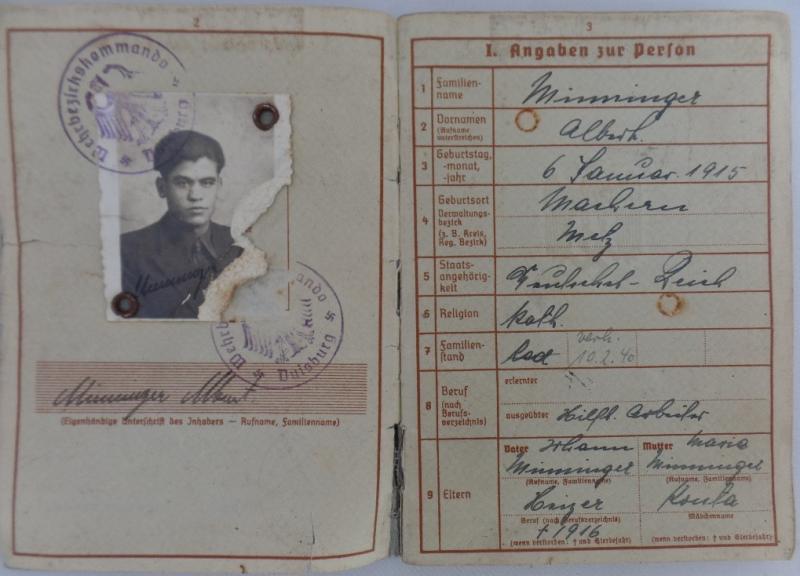 2
Wehrbezirkskommando
Duisburg
Minninger
Wehrbezirkskommando
Duisburg
Minninger Albert.
(Eigenhändige Unterschrift des Inhabers — Rufname, Familienname)
3
I. Angaben zur Person
1 Familien-
name
Minninger
2 Vornamen
(Rufname
unterstreichen)
Albert.
3 Geburtstag,
-monat,
-jahr
6 Januar 1915
4 Geburtsort
Verwaltungs-
bezirk
(z. B. Kreis,
Reg. Bezirk)
Machern
Metz
5 Staats-
angehörig-
keit
Deutsches-Reich
6 Religion
Kath.
7 Familien-
stand
led
verh.
10.2.40
8 Beruf
(nach
Berufs-
verzeichnis)
erlernter
ausgeübter Hilfs. Arbeiter
9 Eltern
Vater Johann
Minninger
(Rufname, Familienname)
Heizer
Beruf (nach Berufsverzeichnis)
† 1916
(wenn verstorben: † und Sterbejahr)
Mutter Maria
Minninger
(Rufname, Familienname)
Mädchenname
(wenn verstorben: † und Sterbejahr)